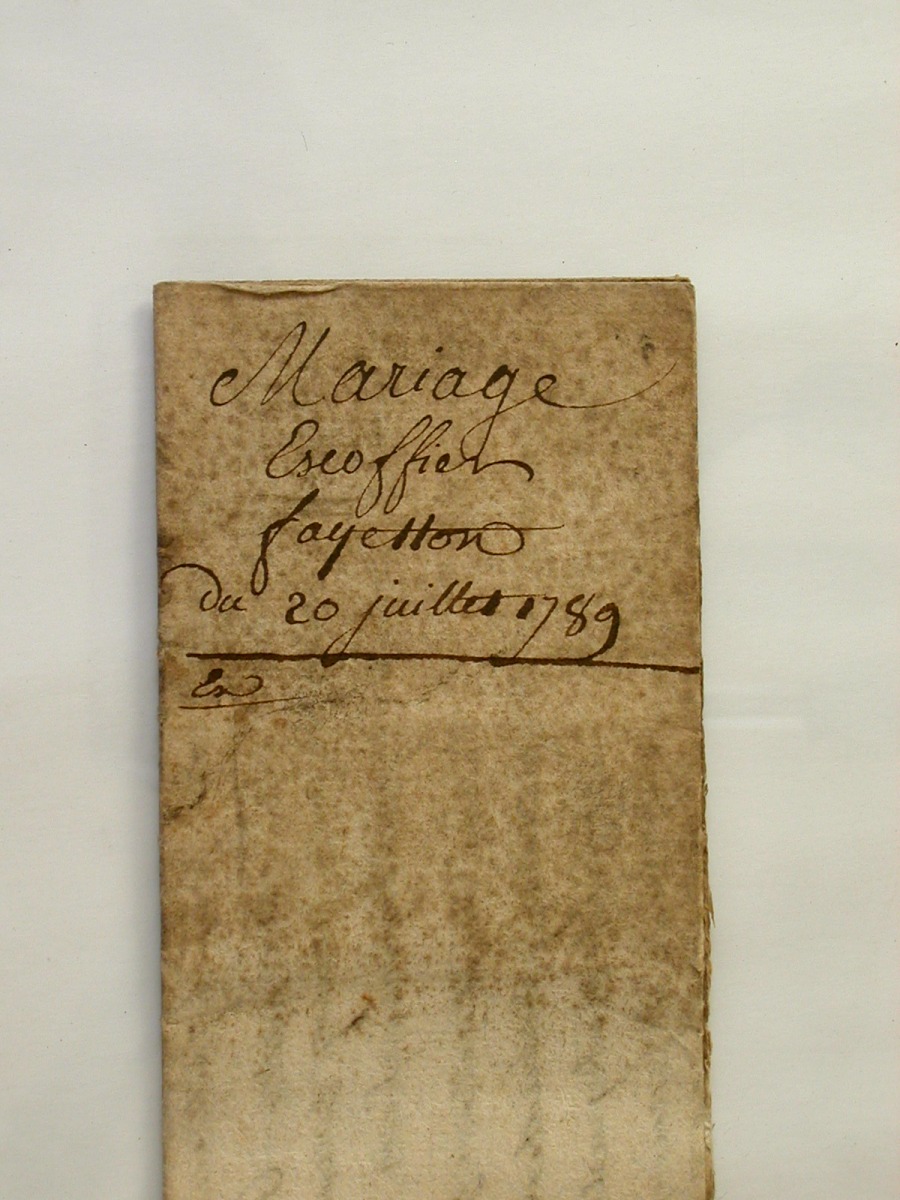 Mariage
Escoffier
fayetton
du 20 juillet 1789